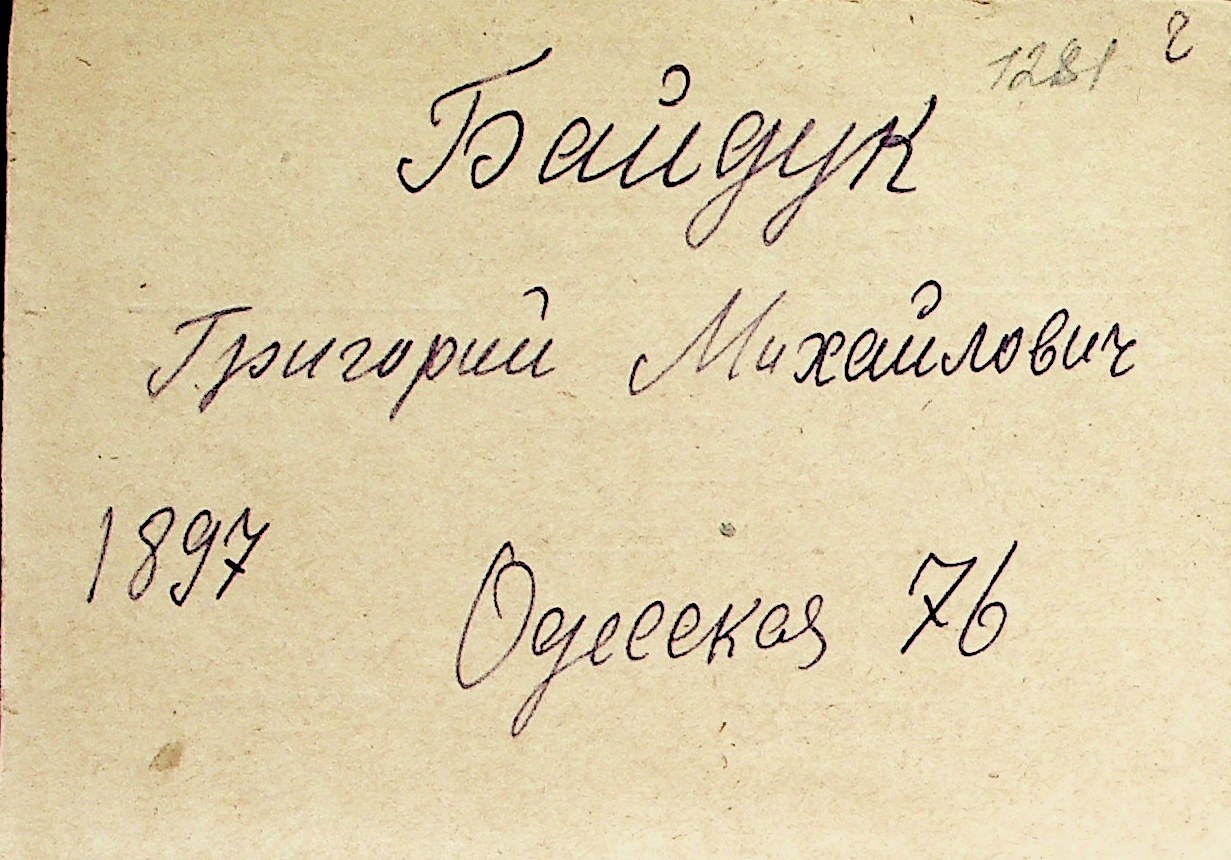 1281
Байдук
Григорий Михайлович
1897
Одесская 76